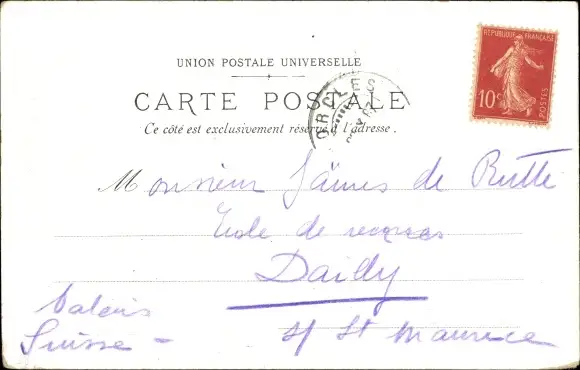 RÉPUBLIQUE FRANÇAISE
10c
POSTES
UNION POSTALE UNIVERSELLE
CARTE POSTALE
Ce côté est exclusivement réservé à l'adresse.
Monsieur James de Rutté
Ecole de recrues
Dailly
s/ St Maurice
Valais
Suisse -